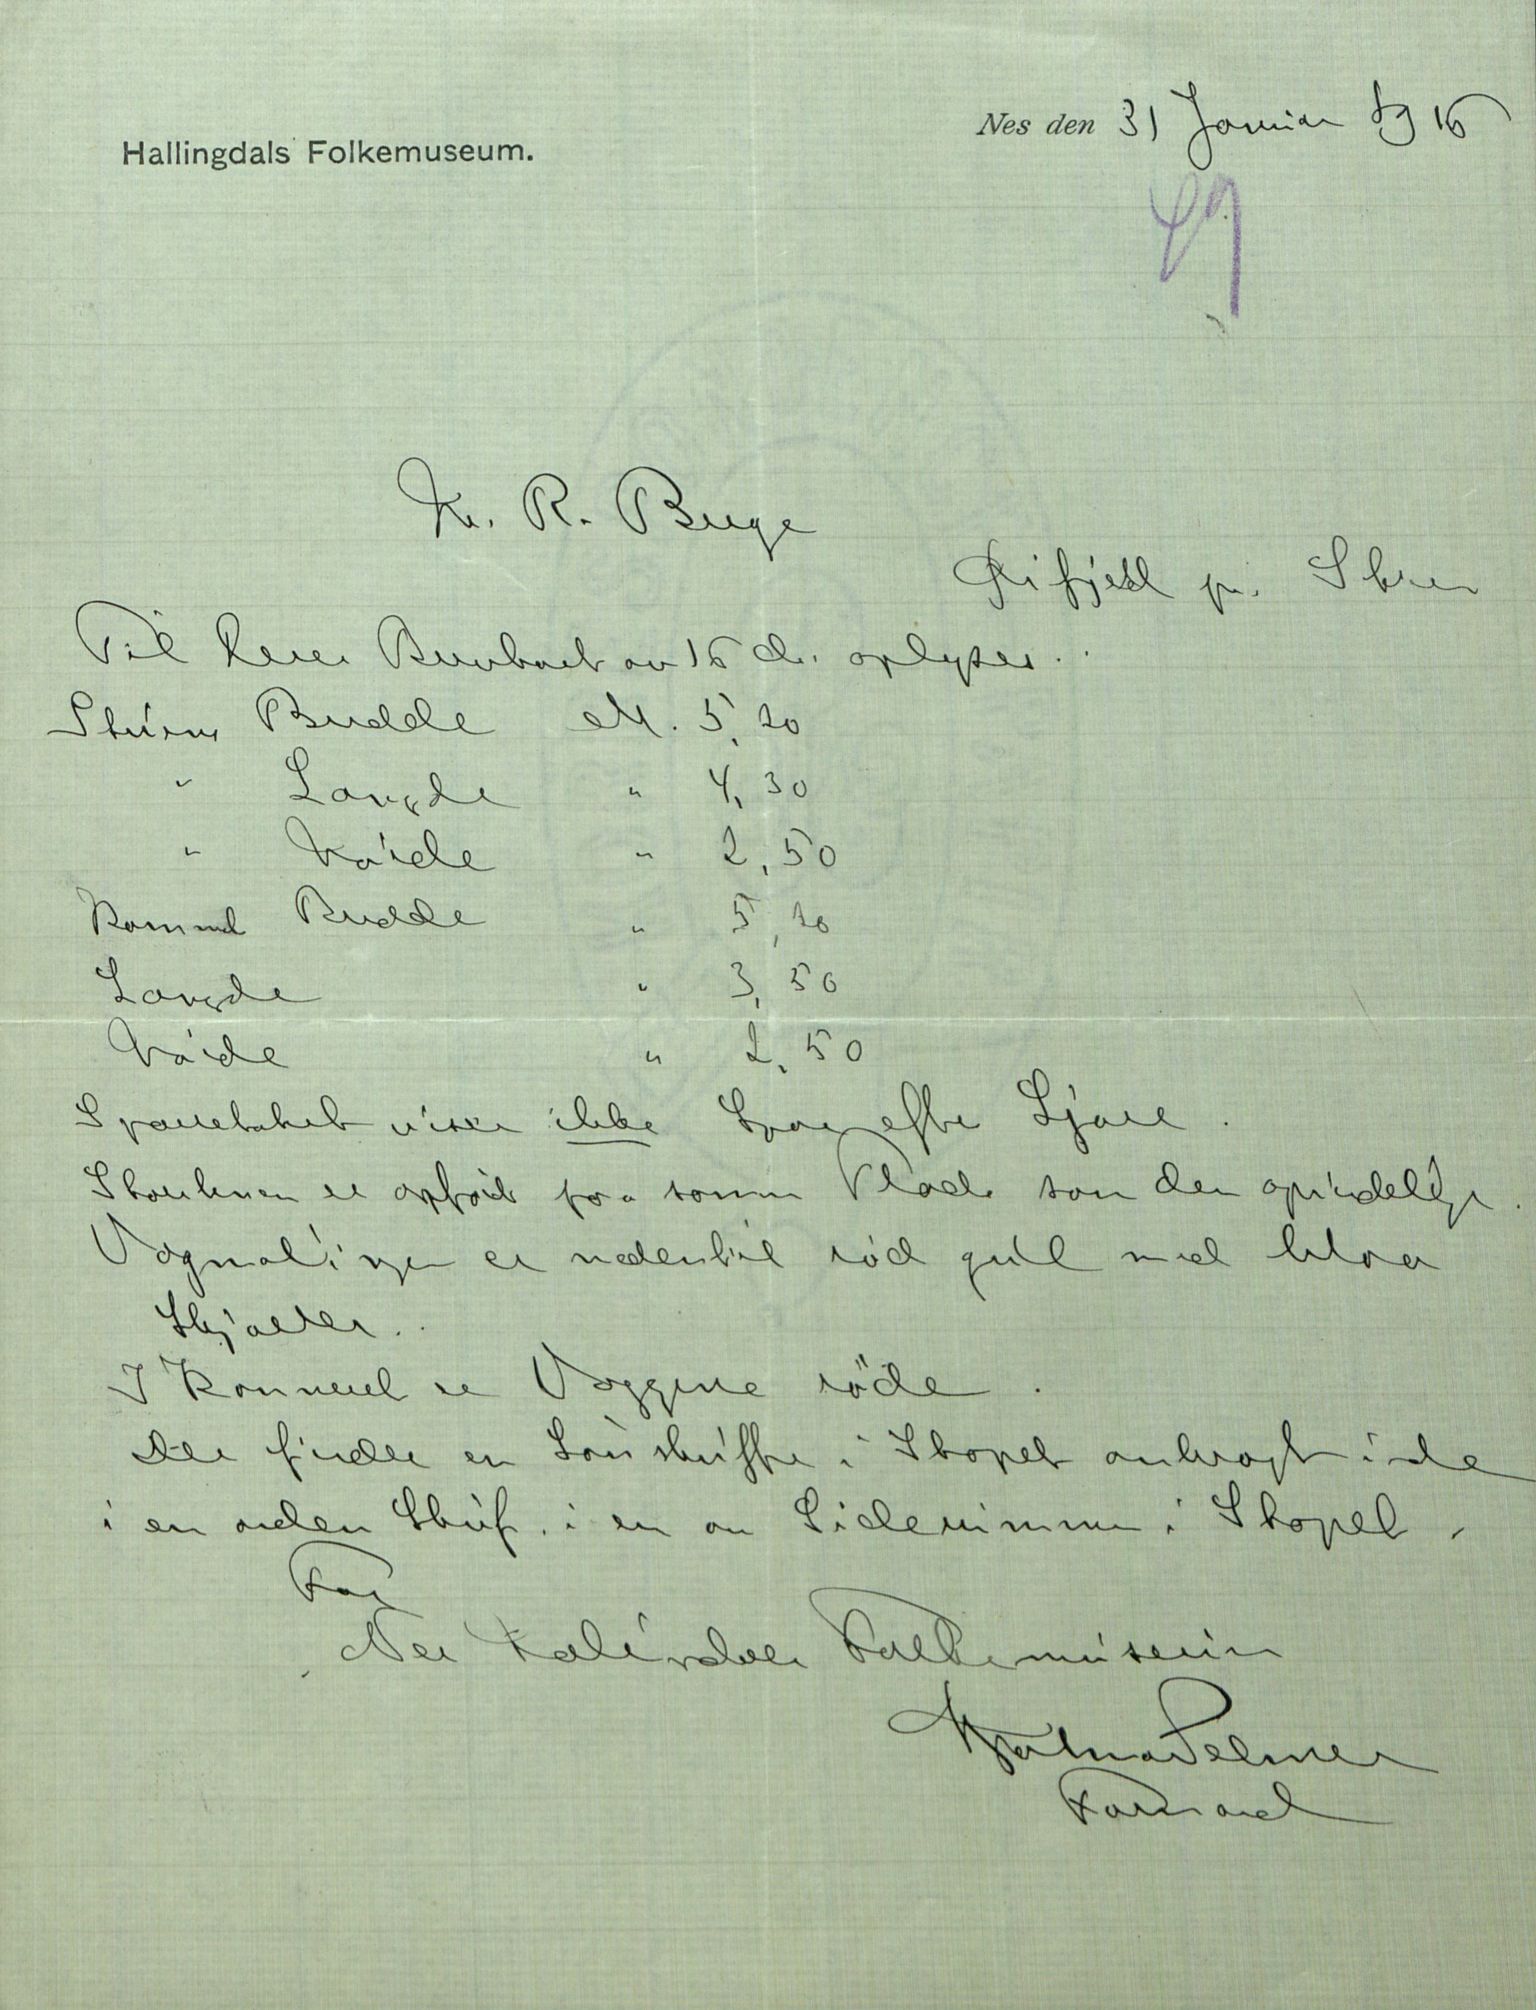 Hallingdals Folkemuseum.
Nes den 31 Januar 1916
Kr. R. Bugge
pr. Skien
Til Deres Brevkort av 16 ds. oplyses.
Stuens Bredde M. 5,20
" Længde " 4,30
" Høide " 2,50
Kammed Bredde " 5,20
Længde " 3,50
Høide " 2,50
Sparretaket viser ikke Spor efter Ljore.
er opført paa samme som den oprindelige.
er nedentil rød gul med blaa
I Kammed er Væggene røde.
Der findes en Lønskuffe i Skapet anbragt inde
i en anden Skuf. i en av Siderummene i Skapet.
For
Folkemuseum
Formand